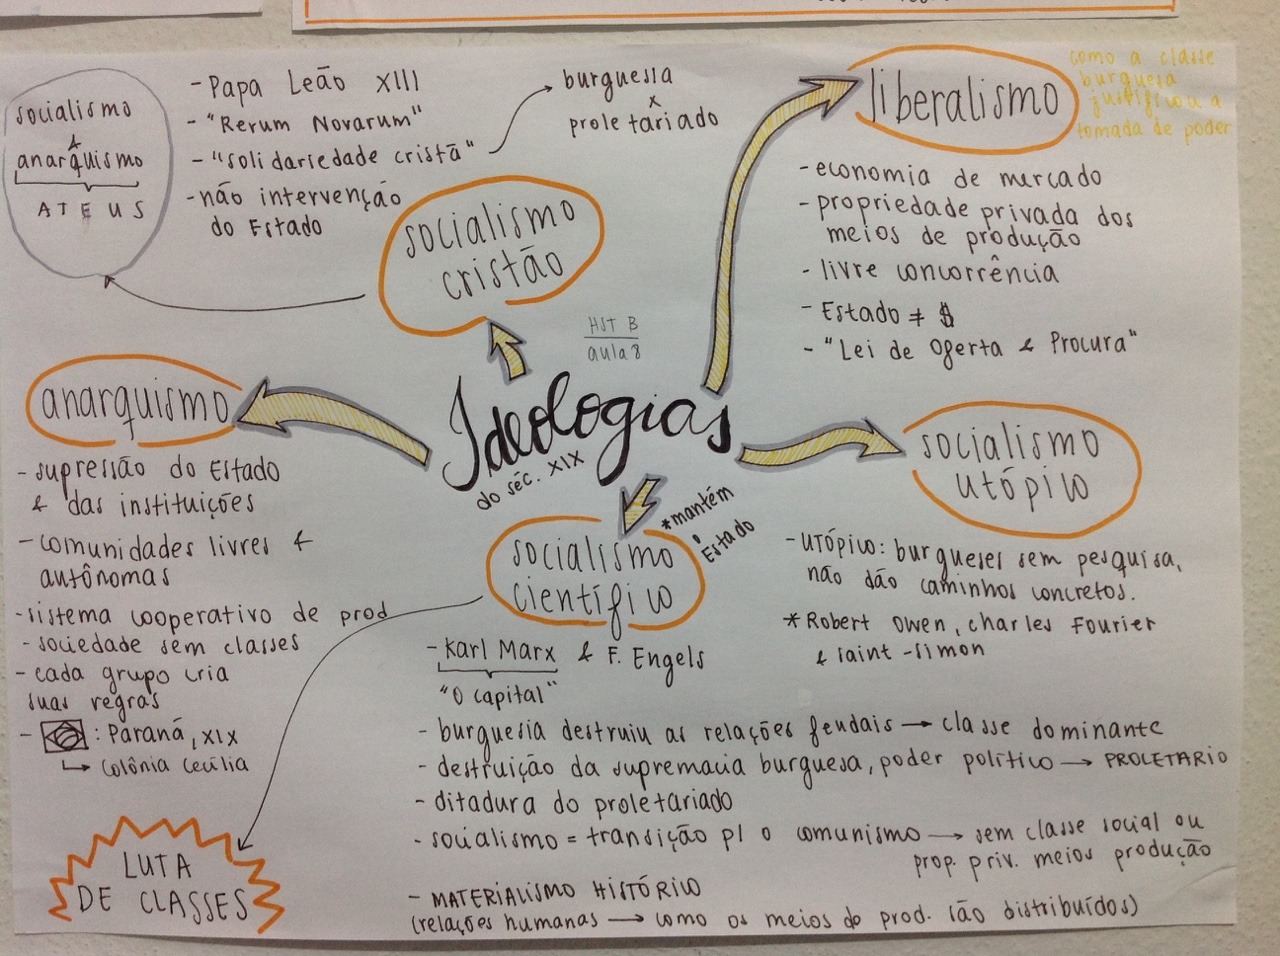 socialismo
&
anarquismo
ATEUS
- Papa Leão XIII
- "Rerum Novarum"
- "solidariedade cristã"
- não intervenção
do Estado
burguesia
x
proletariado
socialismo
cristão
liberalismo
como a classe
burguesa
justificou a
tomada de poder
- economia de mercado
- propriedade privada dos
meios de produção
- livre concorrência
- Estado ≠ $
- "Lei de Oferta & Procura"
HST B
aula 8
Ideologias
do séc. XIX
anarquismo
- supressão do Estado
& das instituições
- comunidades livres &
autônomas
- sistema cooperativo de prod
- sociedade sem classes
- cada grupo cria
suas regras
- : Paraná, XIX
Colônia Cecília
socialismo
utópico
- UTÓPICO: burgueses sem pesquisa,
não dão caminhos concretos.
* Robert Owen, Charles Fourier
& Saint-Simon
socialismo
científico
* mantém
o
Estado
- Karl Marx & F. Engels
"O capital"
- burguesia destruiu as relações feudais → classe dominante
- destruição da supremacia burguesa, poder político → PROLETARIO
- ditadura do proletariado
- socialismo = transição p/ o comunismo → sem classe social ou
prop. priv. meios produção
- MATERIALISMO HISTÓRICO
(relações humanas → como os meios de prod. são distribuídos)
LUTA
DE CLASSES